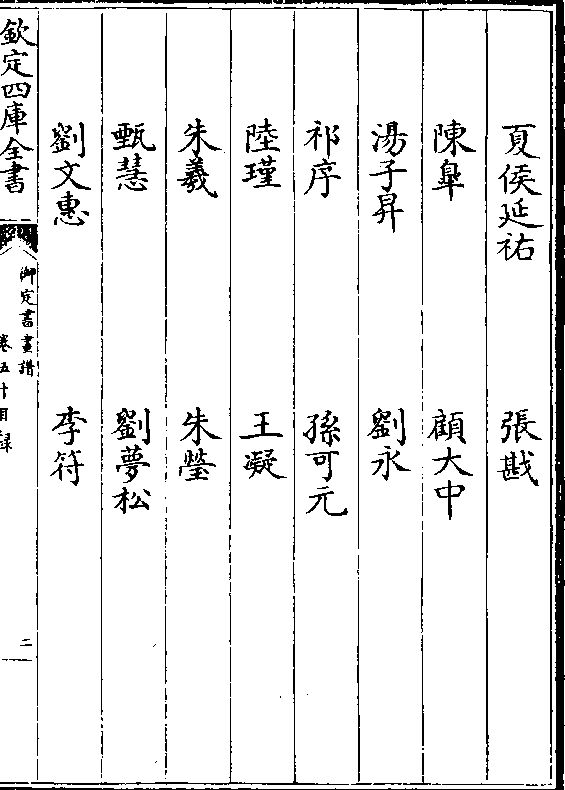 夏侯延祐　張戡
陳臯　顧大中
湯子昇　劉永
祁序　孫可元
陸瑾　王凝
朱羲　朱瑩
甄慧　劉夢松
劉文惠　李符
欽定四庫全書
御定書畫譜
卷五十目錄
二